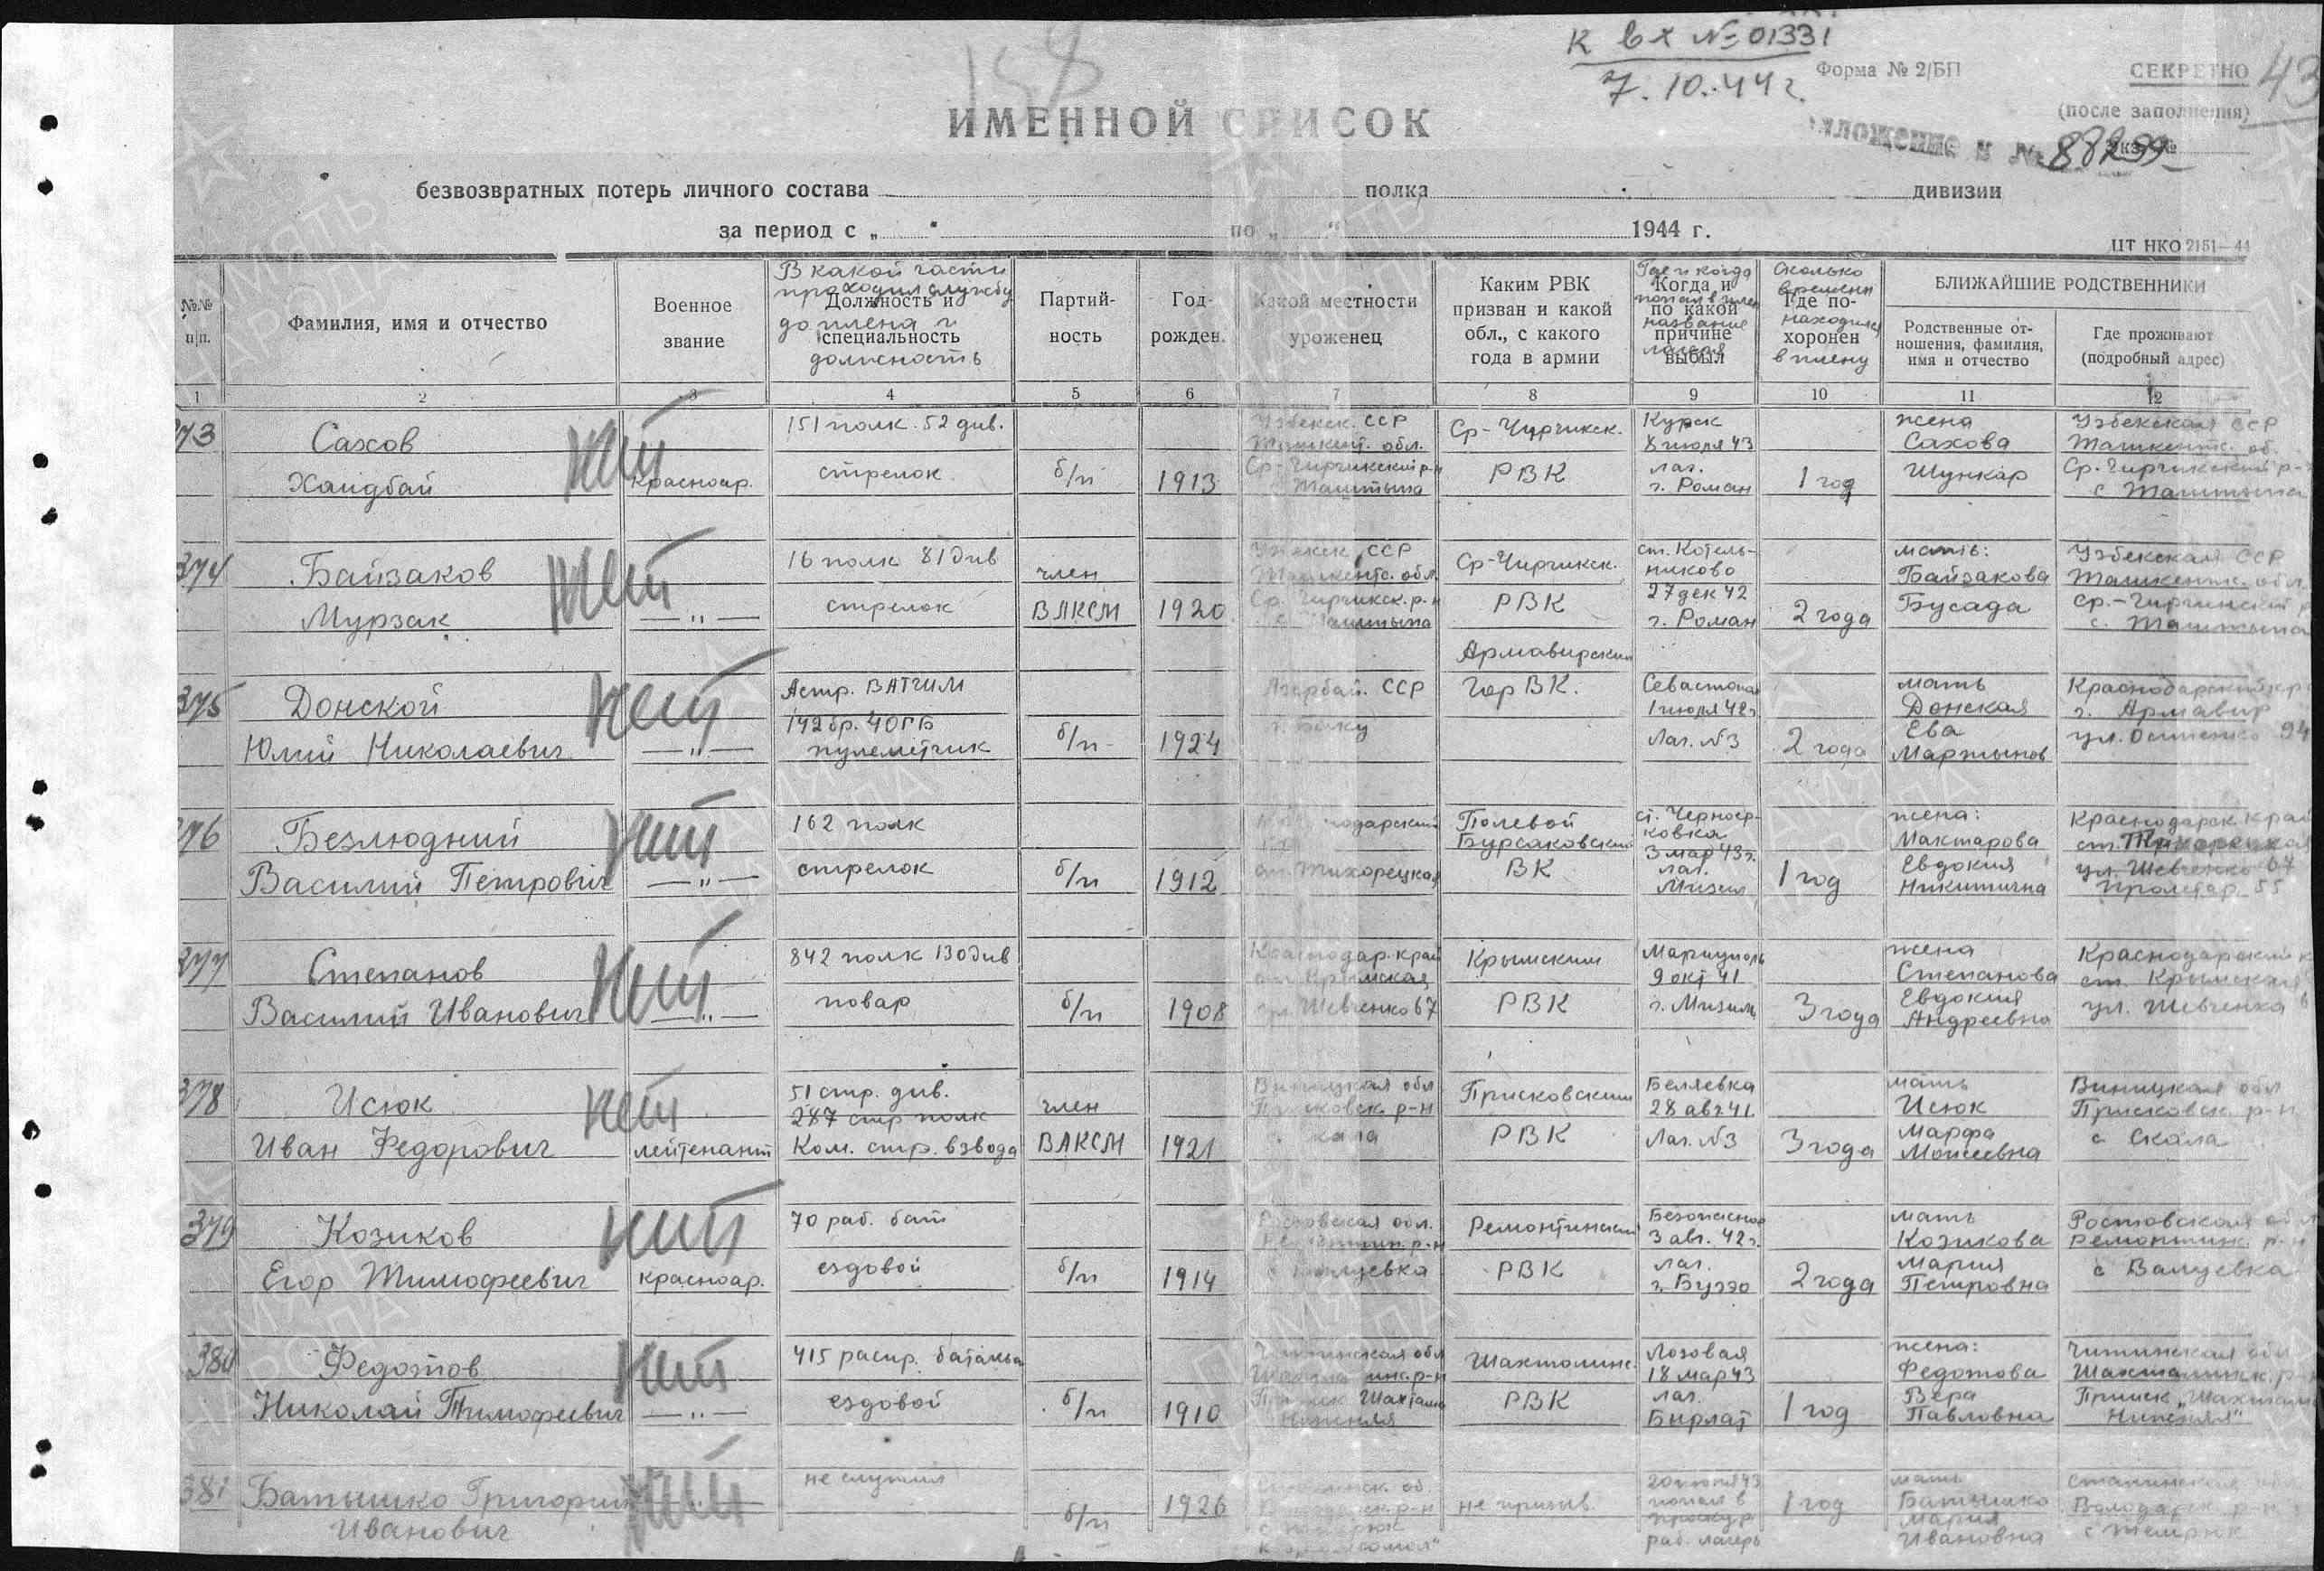 158
к вх № 01331
7.10.44 г.
Форма № 2/БП
СЕКРЕТНО
43
(после заполнения)
ИМЕННОЙ СПИСОК
безвозвратных потерь личного состава полка дивизии
за период с „ “ по „ “ 1944 г.
ЦТ НКО 2151—44
№№ п/п.
Фамилия, имя и отчество
Военное звание
В какой части проходил службу до плена и должность
Должность и специальность
Партий-
ность
Год
рожден.
Какой местности
уроженец
Каким РВК
призван и какой
обл., с какого
года в армии
Где и когда попал в плен название лагеря
Когда и
по какой
причине
выбыл
Сколько времени находился в плену
Где по-
хоронен
БЛИЖАЙШИЕ РОДСТВЕННИКИ
Родственные от-
ношения, фамилия,
имя и отчество
Где проживают
(подробный адрес)
1 2 3 4 5 6 7 8 9 10 11 12
373
Сахов
Хаидбай
нет
Красноар.
151 полк. 52 див.
стрелок
б/п
1913
Узбекск. ССР
Ташкент. обл.
Ср-Чирчикский р-н
Ср-Чирчикск.
РВК
Курск
8 июля 43
лаг.
г. Роман
1 год
жена
Сахова
Шункар
Узбекская ССР
Ташкентс. об.
Ср. Чирчикский р-
374
Байзаков
Мурзак
нет
— „ —
16 полк 81 див
стрелок
член
ВЛКСМ
1920
ССР
Ташкентс. обл.
Ср. Чирчикск. р-н
Ср-Чирчикск.
РВК
ст. Котель-
никово
27 дек 42
г. Роман
2 года
мать:
Байзакова
Бусада
Узбекская ССР
Ташкентск. обл.
Ср.-Чирчикский
375
Донской
Юлий Николаевич
нет
— „ —
142 бр.
пулеметчик
б/п
1924
Азербай. ССР
г. Баку
Армавирский
Гор ВК.
Севастопол
1 июля 42 г
Лаг. №3
2 года
мать
Донская
Ева
Мартынов
Краснодарский кр
г. Армавир
376
Безлюдний
Василий Петрович
нет
— „ —
162 полк
стрелок
б/п
1912
ст. Тихорецкая
Полевой
ВК
3 мар 43 г.
лаг.
Мизил
1 год
жена:
Мактарова
Евдокия
Никитична
Краснодарск. край
ул. Шевченко 67
Пролетар. 55
377
Степанов
Василий Иванович
нет
— „ —
842 полк 130 див
повар
б/п
1908
Краснодар. край
ст. Крымская
ул. Шевченко 67
Крымским
РВК
Мариуполь
9 окт 41
г. Мизиль
3 года
жена
Степанова
Евдокия
Андреевна
Краснодарский к
ст. Крымская
ул. Шевченка
378
Исюк
Иван Федорович
нет
лейтенант
51 стр. див.
287 стр полк
Ком. стр. взвода
член
ВЛКСМ
1921
Виницкая обл
р-н
Присковским
РВК
Беляевка
28 авг 41.
Лаг. №3
3 года
мать
Исюк
Марфа
Моисеевна
Виницкая обл
Присковск. р-н
с Скала
379
Козиков
Егор Тимофеевич
нет
красноар.
70 раб. бат
ездовой
б/п
1914
Ростовская обл.
Ремонтинский
РВК
3 авг. 42 г.
лаг.
г. Бузэо
2 года
мать
Козикова
Мария
Петровна
Ростовская обл
Ремонтинск. р-н
с Валуевка
380
Федотов
Николай Тимофеевич
нет
— „ —
ездовой
б/п
1910
Читинская обл
Шахтоминс.
РВК
Лозовая
18 мар 43
лаг.
Бырлат
1 год
жена:
Федотова
Вера
Павловна
Читинская обл
381
Батышко Григорий
Иванович
нет
не служил
б/п
1926
не призыв.
попал в
раб. лагерь
1 год
мать
Батышко
Мария
Ивановна
Володарск. р-н
с Темрюк